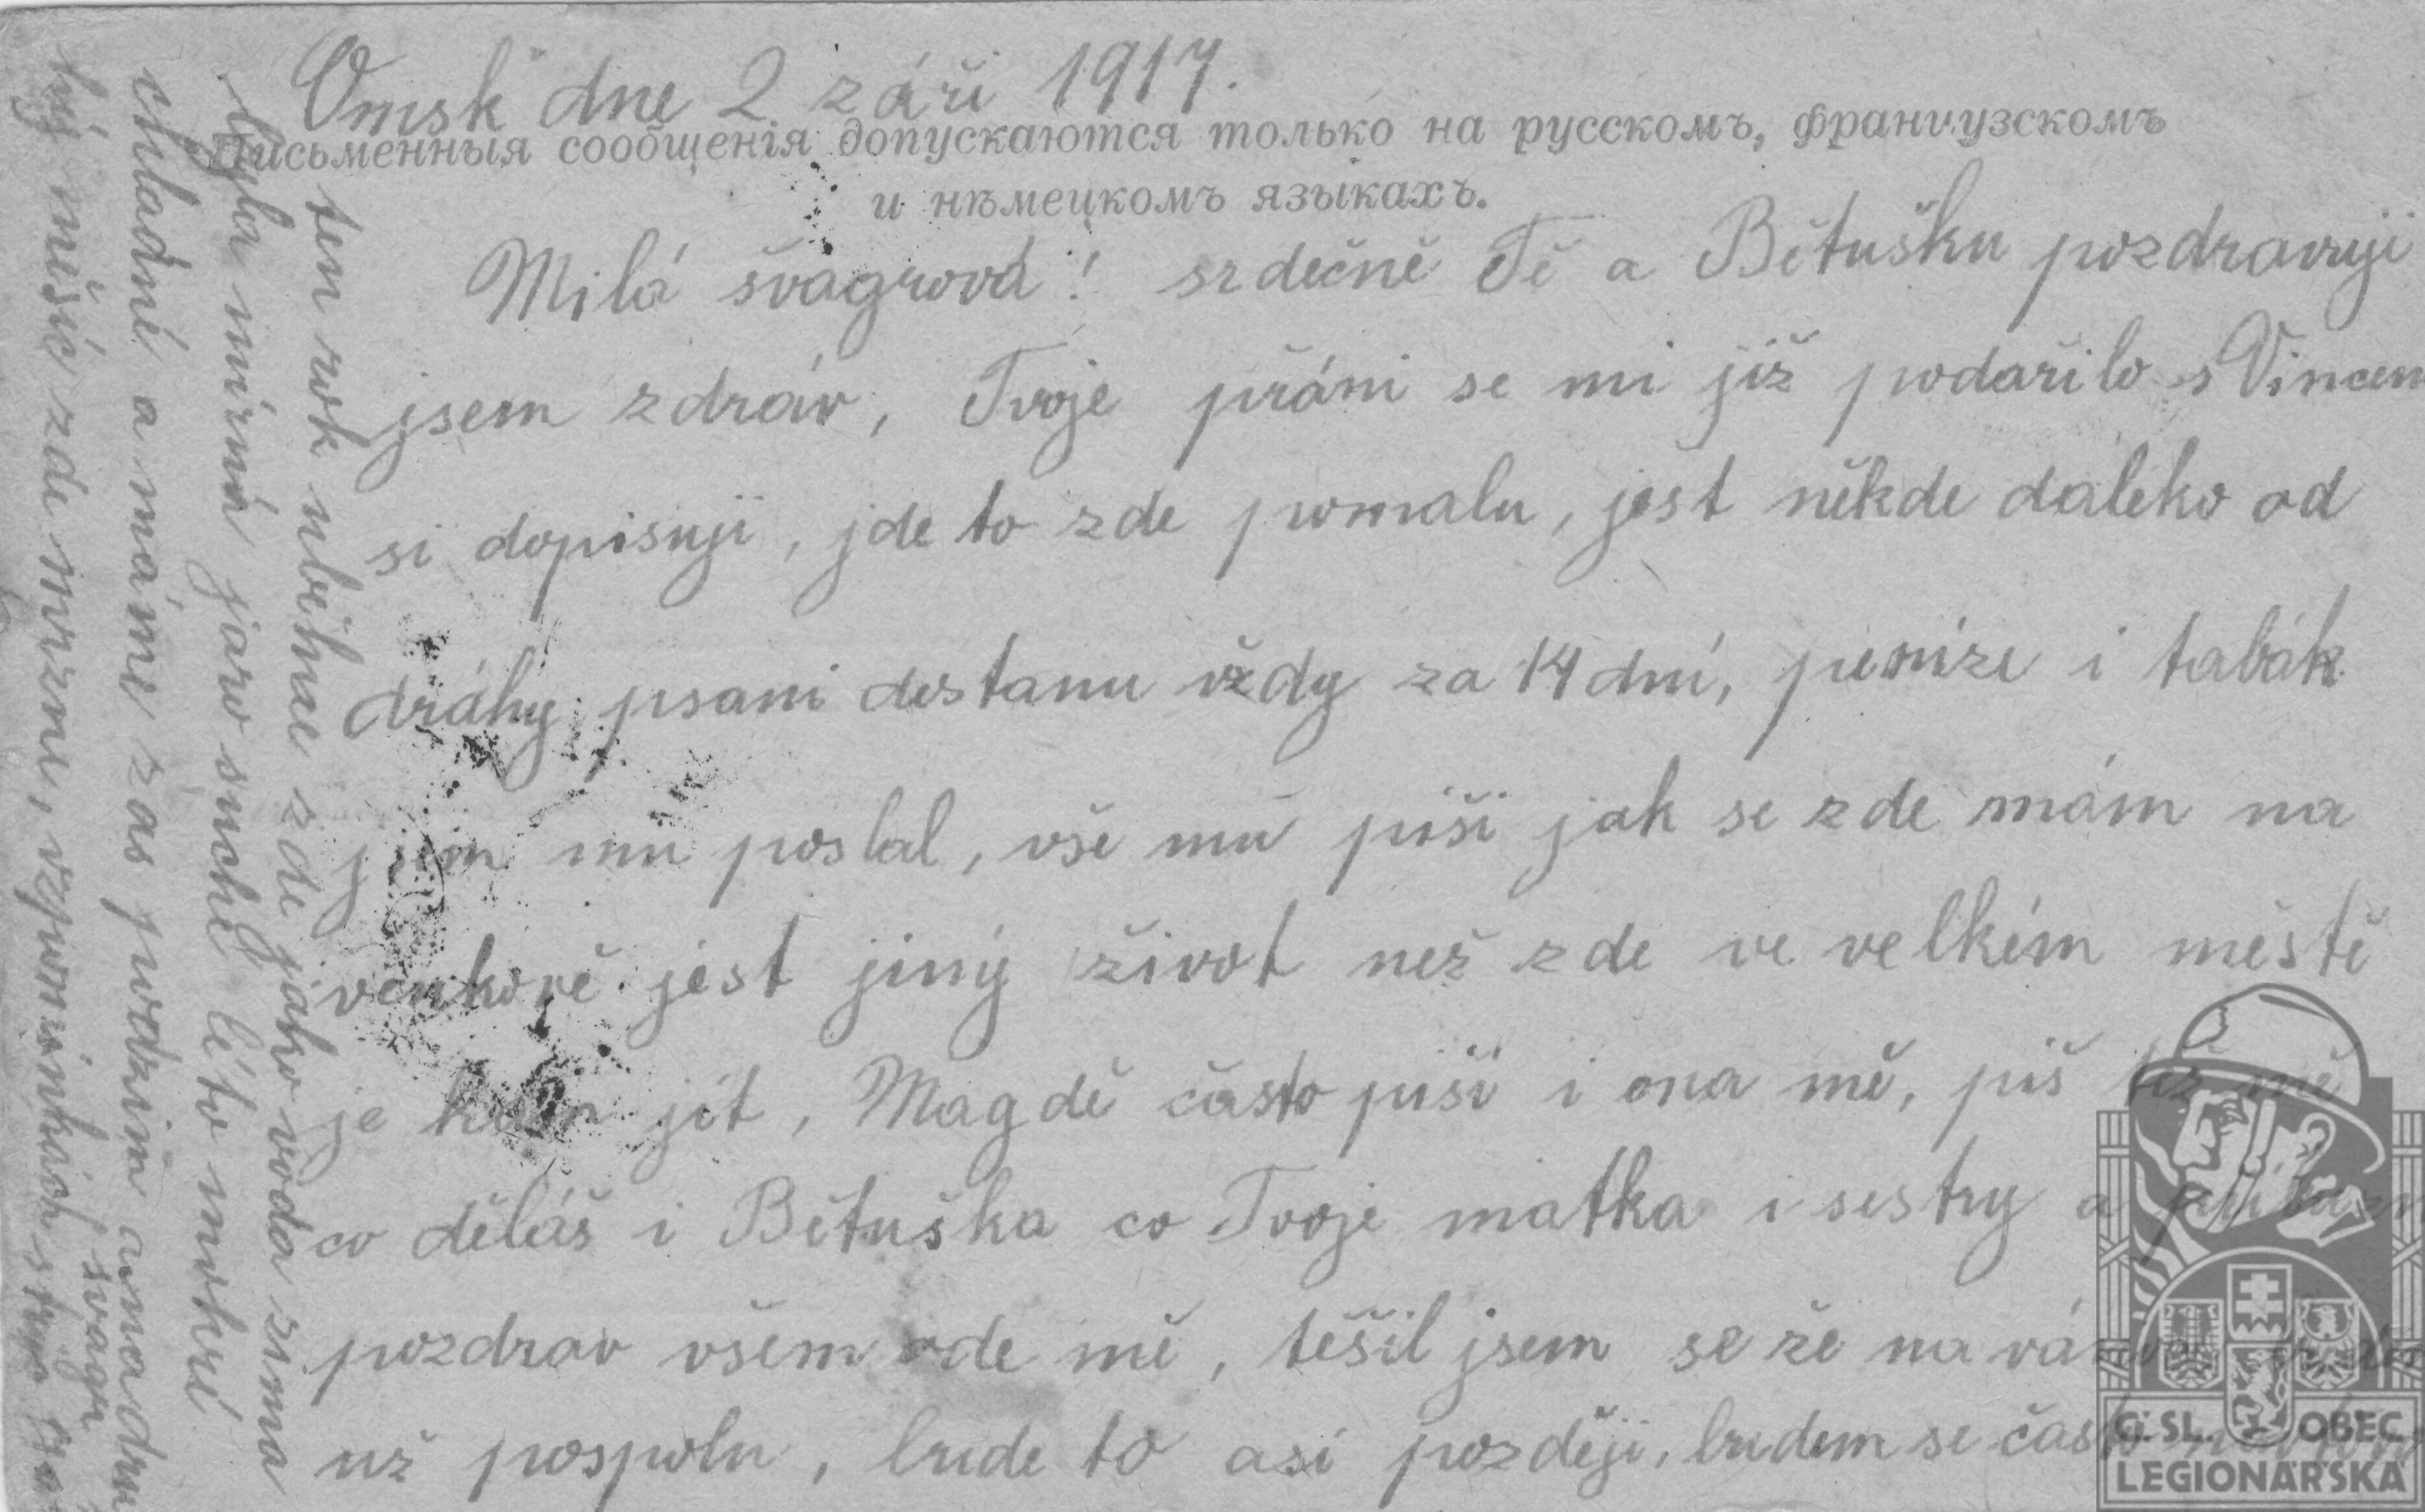 Omsk dne 2 září 1917.
Письменныя сообщенія допускаются только на русскомъ, французскомъ
и нѣмецкомъ языкахъ.
Milá švagrová! srdečně Tě a Bětušku pozdravuji
jsem zdráv, Tvoje přáni se mi již podařilo s Vincen
si dopisuji, jde to zde pomalu, jest někde daleko od
dráhy, psani dostanu vždy za 14 dní, peníze i tabák
jsem mu poslal, vše mu piši jak se zde mám na
venkově jest jiný život než zde ve velkém městě
je kam jít, Magdě často piši i ona mě, piš též mě
co děláš i Bětuška co Tvoje matka i sestry a
pozdrav všem ode mě, těšil jsem se že na
už pospolu, bude to asi později, budem se často
ten rok uběhne zde jako voda zima
byla mírná jaro suché léto mokré
chladné a máme zas podzim a
měsíc zde mrzne, vzpomínkách
švagr
Č. SL. OBEC
LEGIONÁŘSKÁ